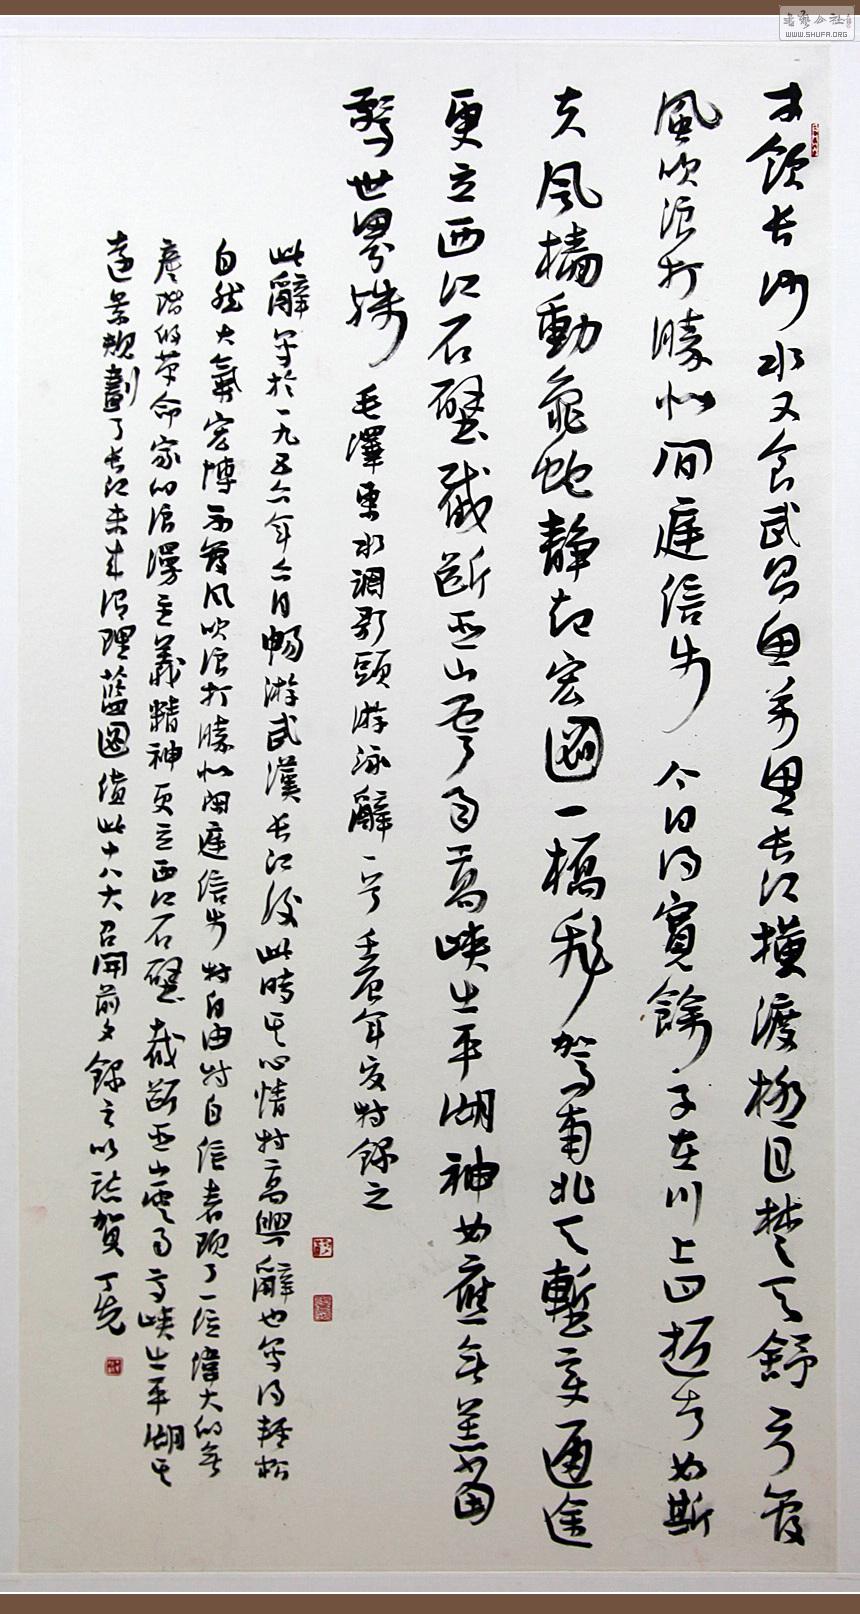 才飲長沙水又食武昌魚萬里長江橫渡極目楚天舒不管
風吹浪打勝似閒庭信步 今日得寬餘子在川上曰逝者如斯
夫風檣動龜蛇靜起宏圖一橋飛駕南北天塹變通途
更立西江石壁截斷巫山雲雨高峽出平湖神女應無恙當
驚世界殊 毛澤東水調歌頭游泳辭一首壬辰年夏特錄之
此辭寫於一九五六年六月暢游武漢長江後此時其心情特高興辭也寫得輕松
自然大氣宏博不管風吹浪打勝似閑庭信步特自由特自信表現了一位偉大的無
產階級革命家的浪漫主義精神更立西江石壁截斷巫山雲雨高峽出平湖其
遠景規劃了長江未來治理藍圖值此十八大召開前夕錄之以誌賀 丁先
WWW.SHUFA.ORG